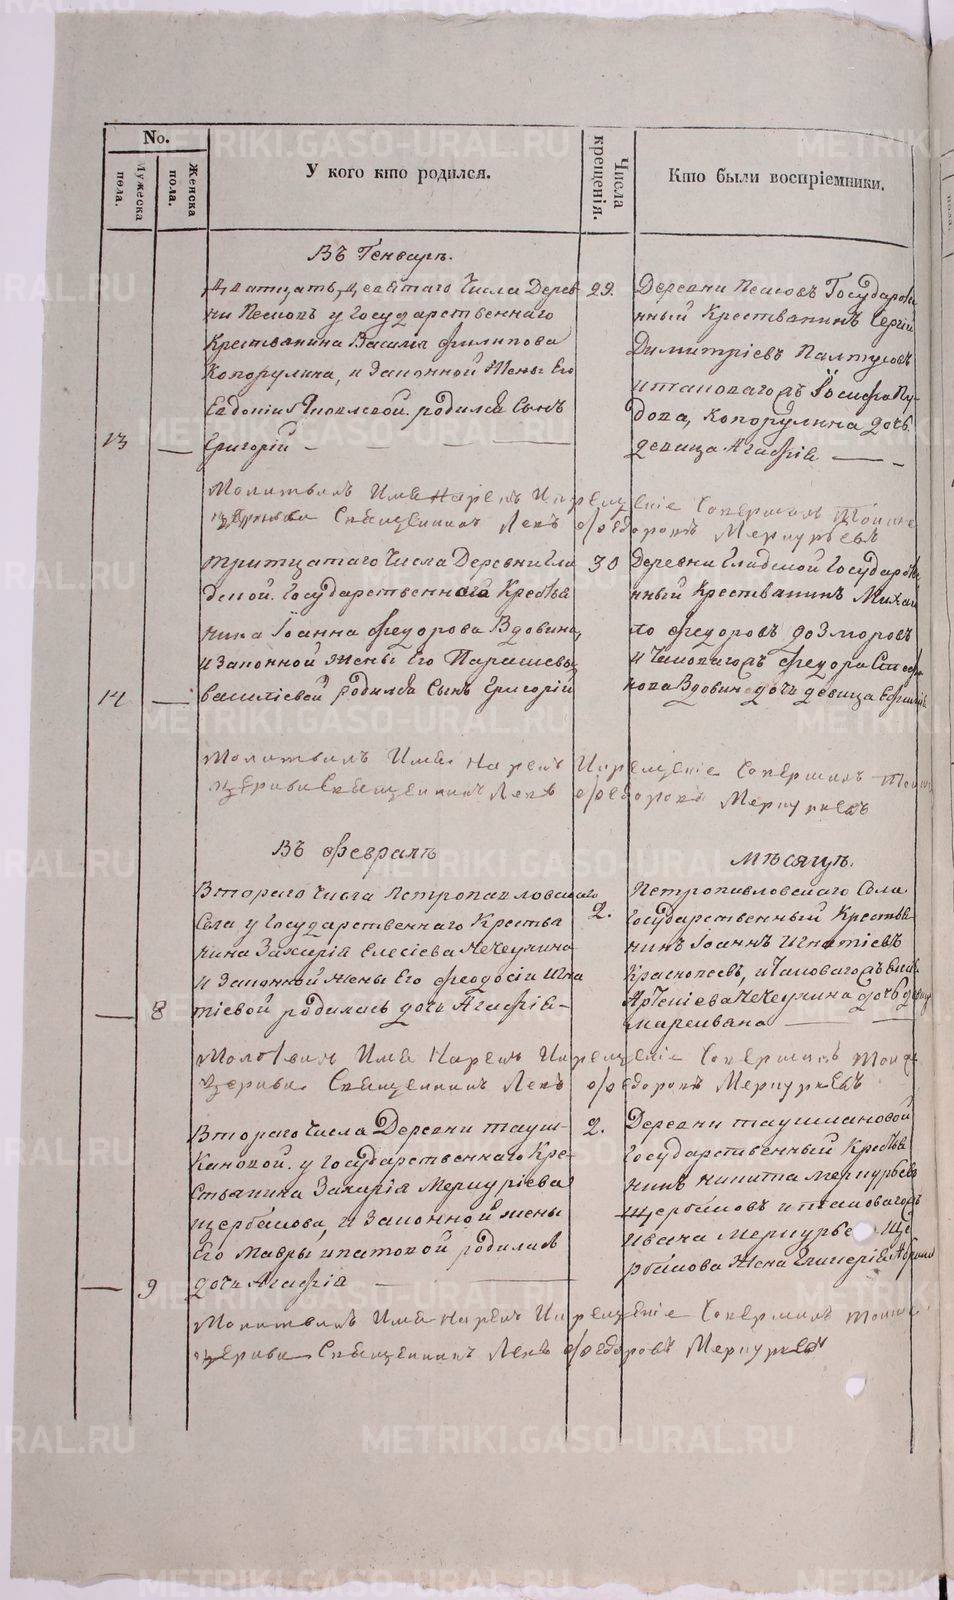 No.
Мужеска пола.
Женска пола.
У кого кто родился.
Числа крещенія.
Кто были воспріемники.
Въ Генваре.
Дватцать девятаго Числа Дерев
ни Песковъ у Государственнаго
Крестьянина Василія Филипова
и Законной Жены Его
Евдокіи Яковлевой родился Сынъ
13 — Григорій —
29.
Деревни Песковъ Государстве
нный Крестьянинъ Сергій
Димитріевъ Палтусовъ
и таковагожъ Іосифа
дочь
девица Агафія —
Молитвилъ Имя Нарекъ И крещеніе Совершилъ Тойже
церкви Священникъ Левъ Федоровъ Меркурьевъ
тритцатаго Числа Деревни Гла
дкой Государственнаго Крестья
нина Іоанна Федорова Вдовина,
и законной жены Его Парасковьи
14 — Василіевой родился Сынъ Григорій
30
Деревни Гладкой Государстве
нный Крестьянинъ Михаи
ло Федоровъ
и таковагожъ Федора Стефа
нова Вдовина дочь девица
Молитвилъ Имя Нарекъ И крещеніе Совершилъ Тойже
церкви Священникъ Левъ Федоровъ Меркурьевъ
Въ Феврале
Месяце.
Втораго Числа Петропавловскаго
Села у Государственнаго Крестья
нина Захарія Елесіева Чечулина
и Законной жены Его Феодосіи Игна
— 8 тіевой родилась дочь Агафія —
2.
Петропавловскаго Села
Государственный Крестья
нинъ Іоаннъ Игнатіевъ
и таковагожъ
Чечулина дочь
Молитвилъ Имя Нарекъ И крещеніе Совершилъ Тойже
церкви Священникъ Левъ Федоровъ Меркурьевъ
Втораго Числа Деревни Тауш-
кановой у Государственнаго Кре-
стьянина Захарія Меркуріева
Щербакова, и Законной жены
Его Мавры Ипатовой родилась
— 9 дочь Агафія —
2.
Деревни Таушкановой
Государственный Крестья
нинъ Никита Меркурьевъ
Щербаковъ и таковагожъ
Ивана Меркурье Ще
рбакова Жена
Молитвилъ Имя Нарекъ И крещеніе Совершилъ Тойже
церкви Священникъ Левъ Федоровъ Меркурьевъ
METRIKI.GASO-URAL.RU